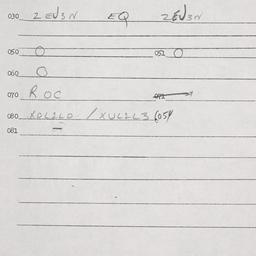 030 2 EU3N EQ 2EU3N
050 O 051 O
060 O
070 ROC
080 XOLILO / XULIL3 (054
081 —